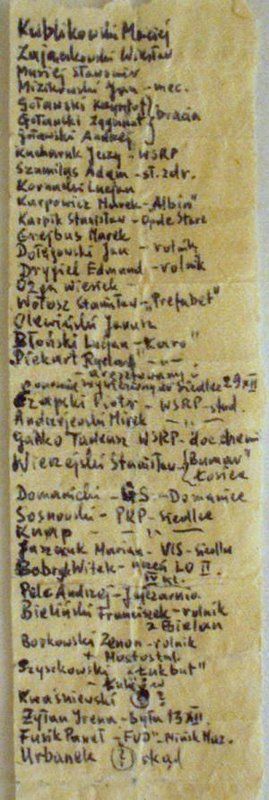 Kublikowski Maciej
Zajączkowski Wiesław
Musiej Sławomir
Mizikowski Jan - mec.
Goławski Krzysztof
Goławski Zygmunt } bracia
Goławski Andrzej
Kucharuk Jerzy - WSRP
Szamiłas Adam - st. zdr.
Koranacki Lucjan
Karpowicz Marek - "Albin"
Karpik Stanisław - Opole Stare
Grejbus Marek
Dołęgowski Jan - rolnik
Drygiel Edmund - rolnik
Wiesiek -
Wołosz Stanisław - "Prefabet"
Olewiński Janusz
Błoński Lucjan - "Karo"
Piekart Ryszard - " -
aresztowany
ponownie w Siedlce 29 XII
Czapski Piotr - WSRP - stud.
Andrzejewski Mirek - " -
Gałko Tadeusz WSRP - doc. chemi
Wierzejski Stanisław - "Bumar" Łosice
Domanicki - GS - Domanice
Sosnowski - PKP - Siedlce
Knap - " -
Jaszczuk Marian - VIS - Siedlce
Bobryk Witek - uczeń LO II.
IV kl.
Pele Andrzej - Jajczarnia
Bieliński Franciszek - rolnik
z Bielan
Borkowski Zenon - rolnik
+ Mostostal
Szyszkowski - "Łukbut"
- Łuków
Kwaśniewski ?
Zytan Irena - była 13 XII.
Fusik Paweł - "FUD" - Mińsk Maz.
Urbanek ? skąd